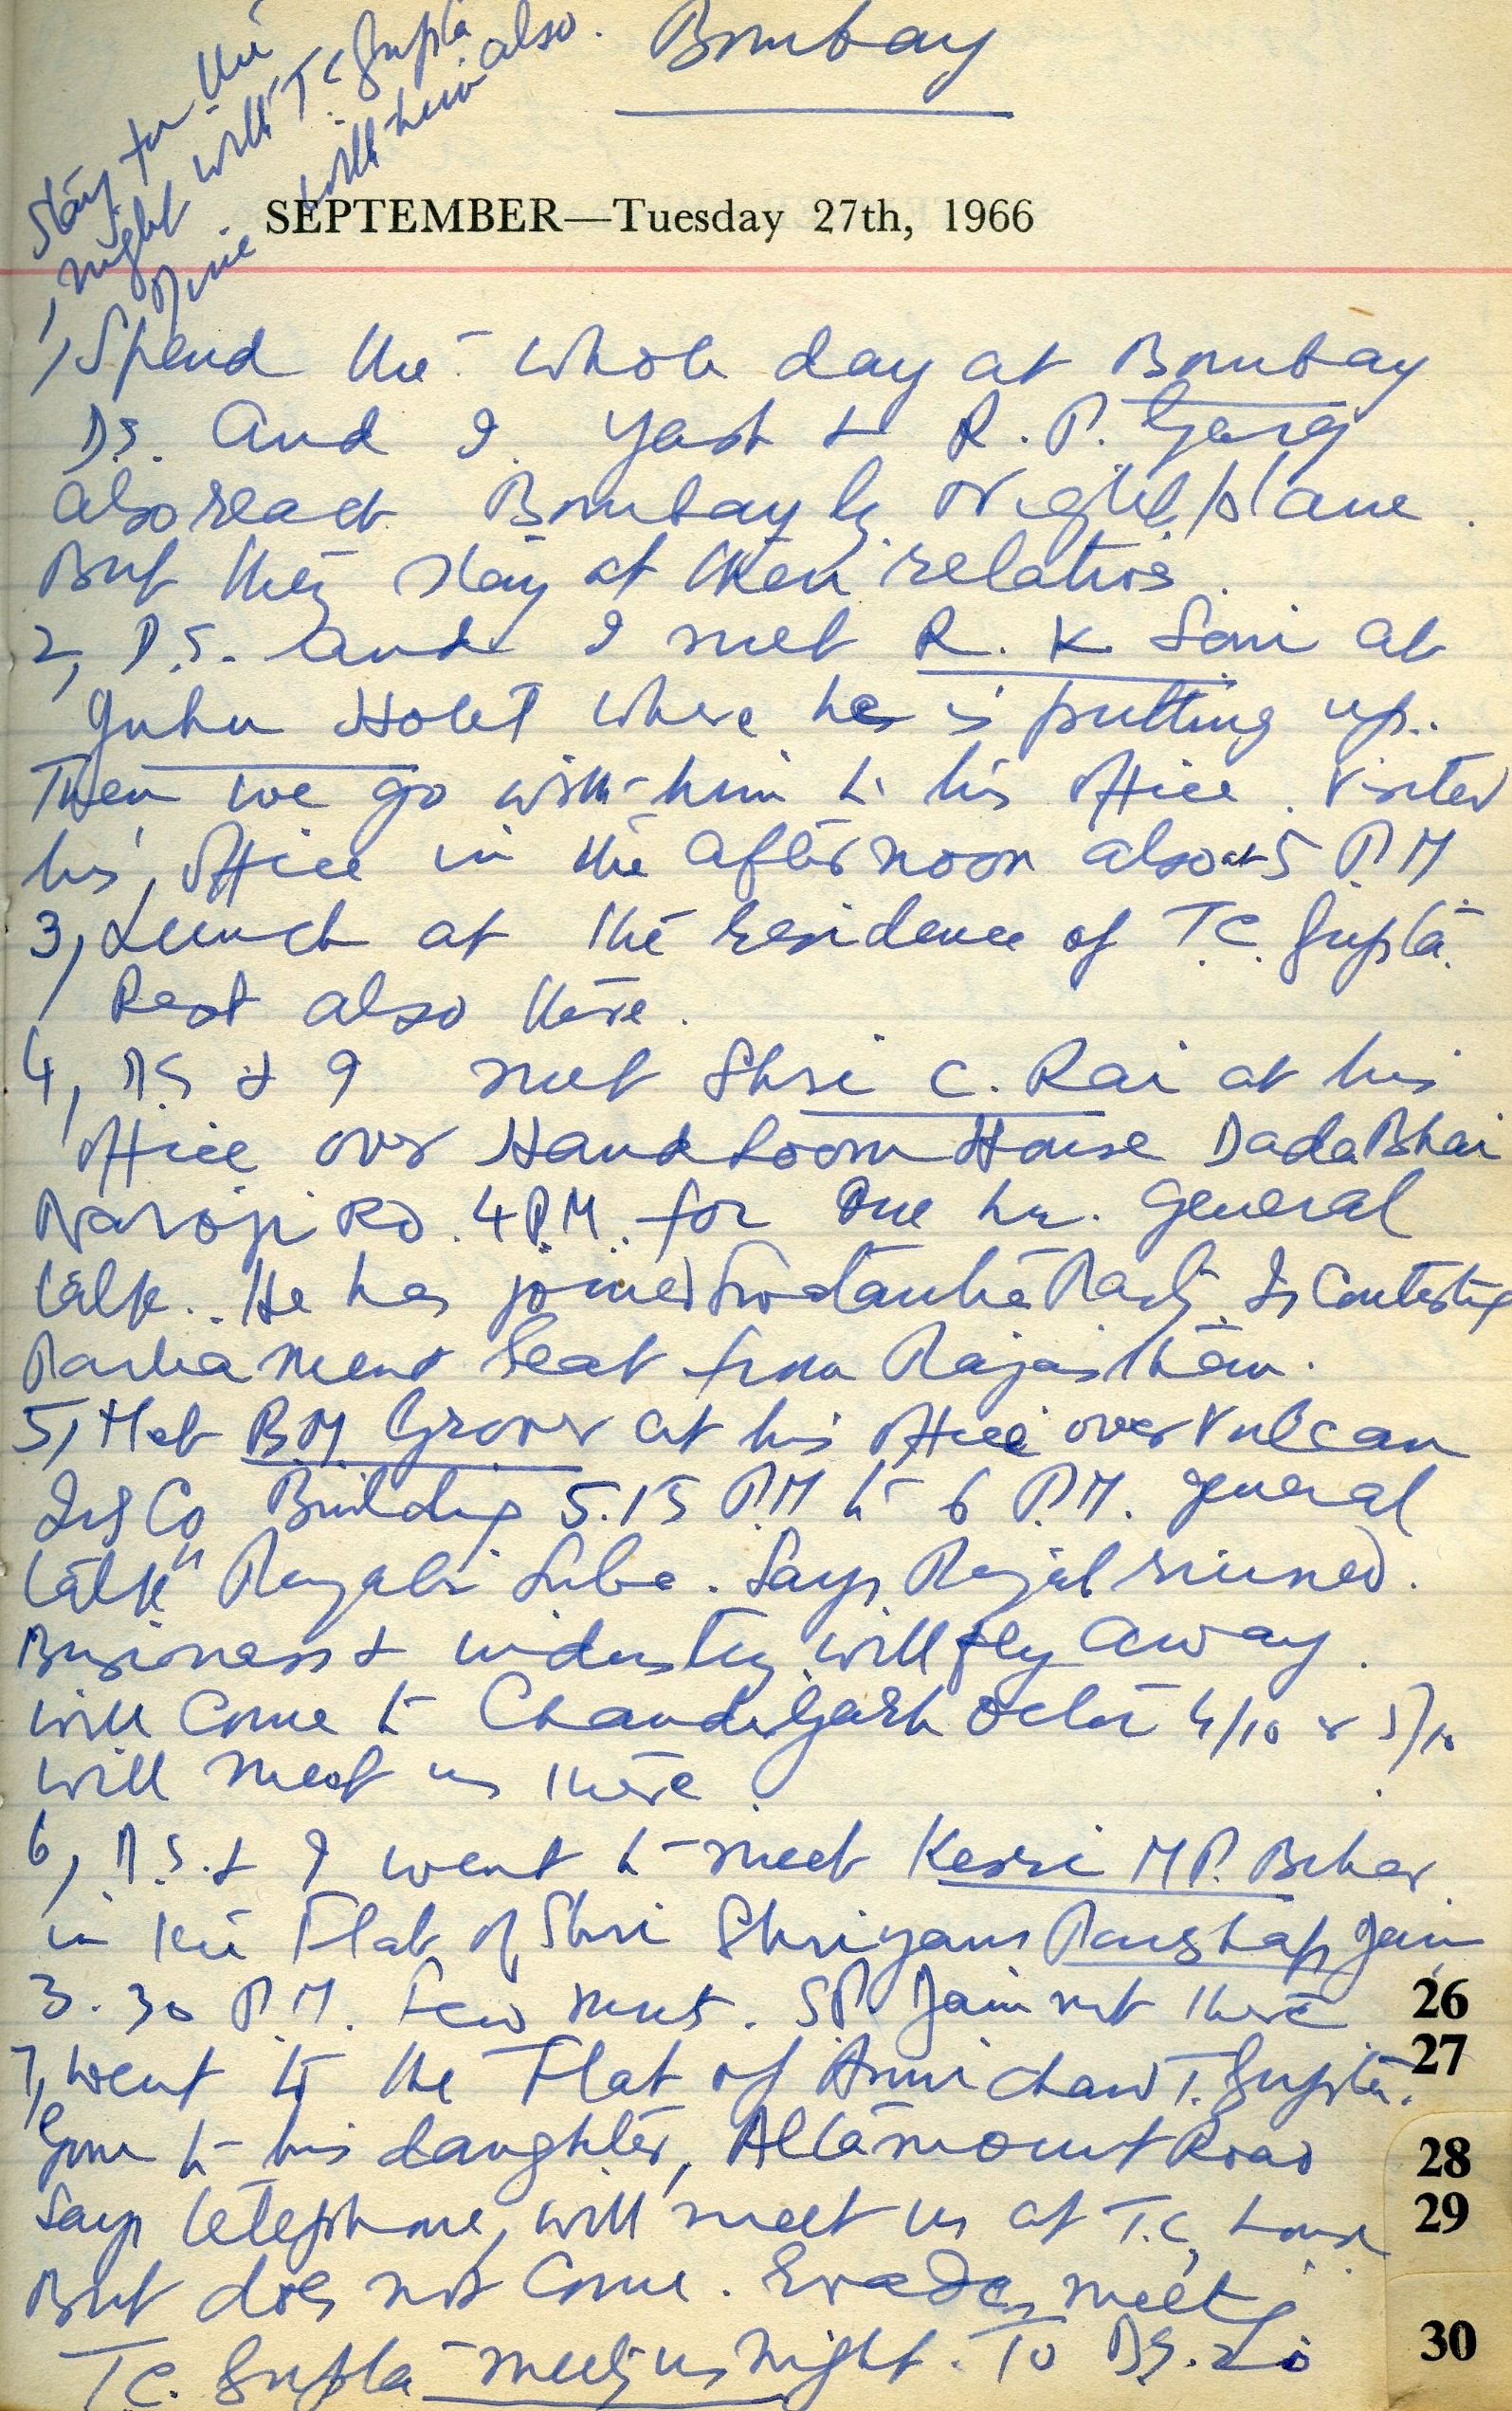 Bombay
Stay for the
night with T.C Gupta
Dine with him also.
SEPTEMBER—Tuesday 27th, 1966
1, Spend the whole day at Bombay
D.S. and I. Yash & R. P. Garg
also reach Bombay by Night plane.
But they stay at their relatives.
2, D.S. and I met R. K. Soni at
Juhu Hotel where he is putting up..
Then we go with him to his office. Visited
his office in the afternoon also at 5 P.M.
3, Lunch at the residence of T.C. Gupta.
Rest also there.
4, D.S & I met Shri C. Rai at his
office over Handloom House DadaBhai
Naroji Rd. 4 P.M. for one hr. General
talk.. He has joined Swatantra Party. Is Contesting
Parliament Seat from Rajasthan.
5, Met B.M. Grover at his office over Vulcan
Ins Co Building 5.15 P.M to 6 P.M. General
talk Punjabi Suba. Says Punjab ruined.
Business & industry will fly away.
Will Come to Chandigarh 4/10 & 5/10
will meet us there.
6, D.S. & I went to meet Kesri M.P. Behar.
in the Flat of Shri Shriyans Parshap Jain
3.30 P.M. Few mnts. S.P. Jain not there
7, Went to the Flat of Ami Chand T. Gupta.
Gone to his daughter, Altamount Road
Says telephone, will meet us at T.C. house
But does not Come. Evades meeting
T.C. Gupta meets us night. To D.S.
26
27
28
29
30